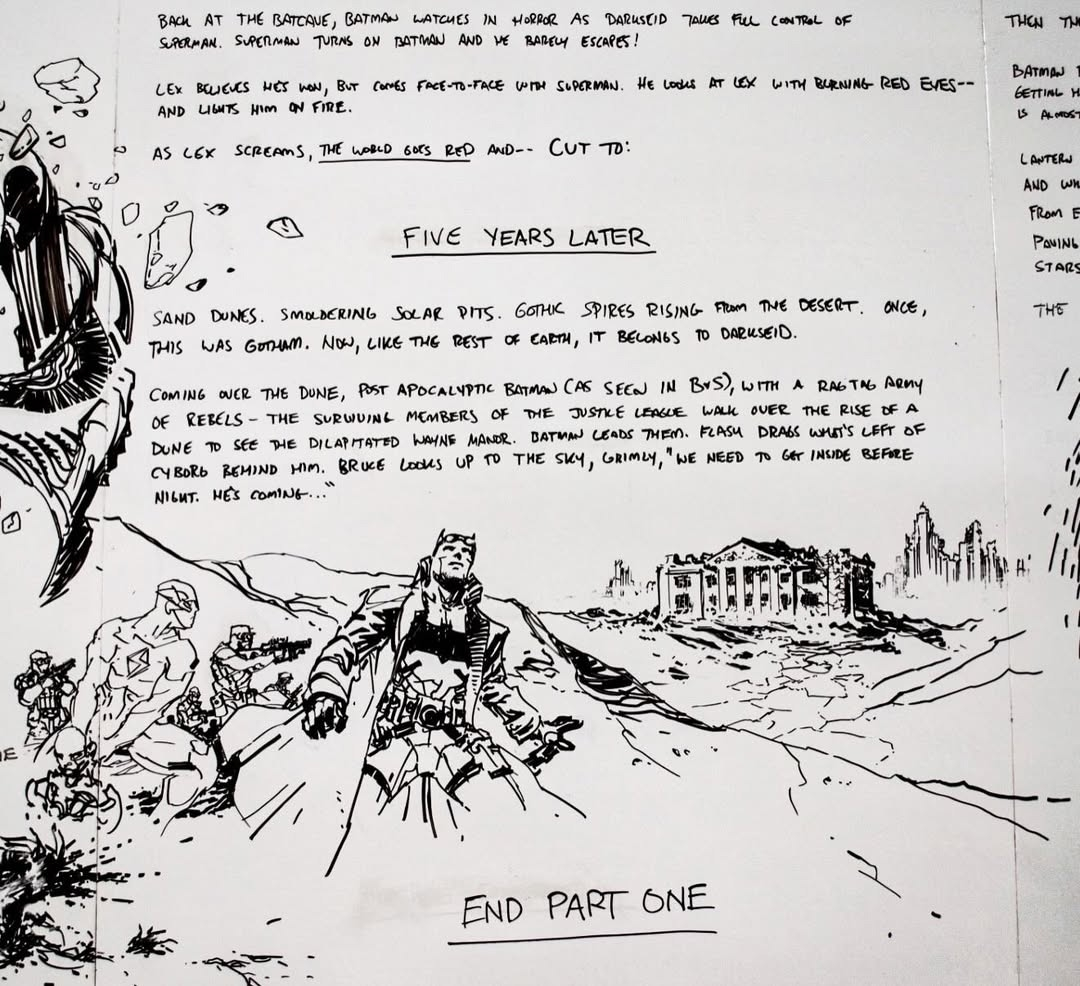 BACK AT THE BATCAVE, BATMAN WATCHES IN HORROR AS DARKSEID TAKES FULL CONTROL OF
SUPERMAN. SUPERMAN TURNS ON BATMAN AND HE BARELY ESCAPES!
LEX BELIEVES HE'S WON, BUT COMES FACE-TO-FACE WITH SUPERMAN. HE LOOKS AT LEX WITH BURNING RED EYES--
AND LIGHTS HIM ON FIRE.
AS LEX SCREAMS, THE WORLD GOES RED AND-- CUT TO:
FIVE YEARS LATER
SAND DUNES. SMOLDERING SOLAR PITS. GOTHIC SPIRES RISING FROM THE DESERT. ONCE,
THIS WAS GOTHAM. NOW, LIKE THE REST OF EARTH, IT BELONGS TO DARKSEID.
COMING OVER THE DUNE, POST APOCALYPTIC BATMAN (AS SEEN IN BvS), WITH A RAGTAG ARMY
OF REBELS - THE SURVIVING MEMBERS OF THE JUSTICE LEAGUE WALK OVER THE RISE OF A
DUNE TO SEE THE DILAPITATED WAYNE MANOR. BATMAN LEADS THEM. FLASH DRAGS WHAT'S LEFT OF
CYBORG BEHIND HIM. BRUCE LOOKS UP TO THE SKY, GRIMLY, "WE NEED TO GET INSIDE BEFORE
NIGHT. HE'S COMING..."
END PART ONE
THEN
BATMAN
GETTING
IS ALMOST
LANTERN
AND
FROM
PAVING
STARS
THE